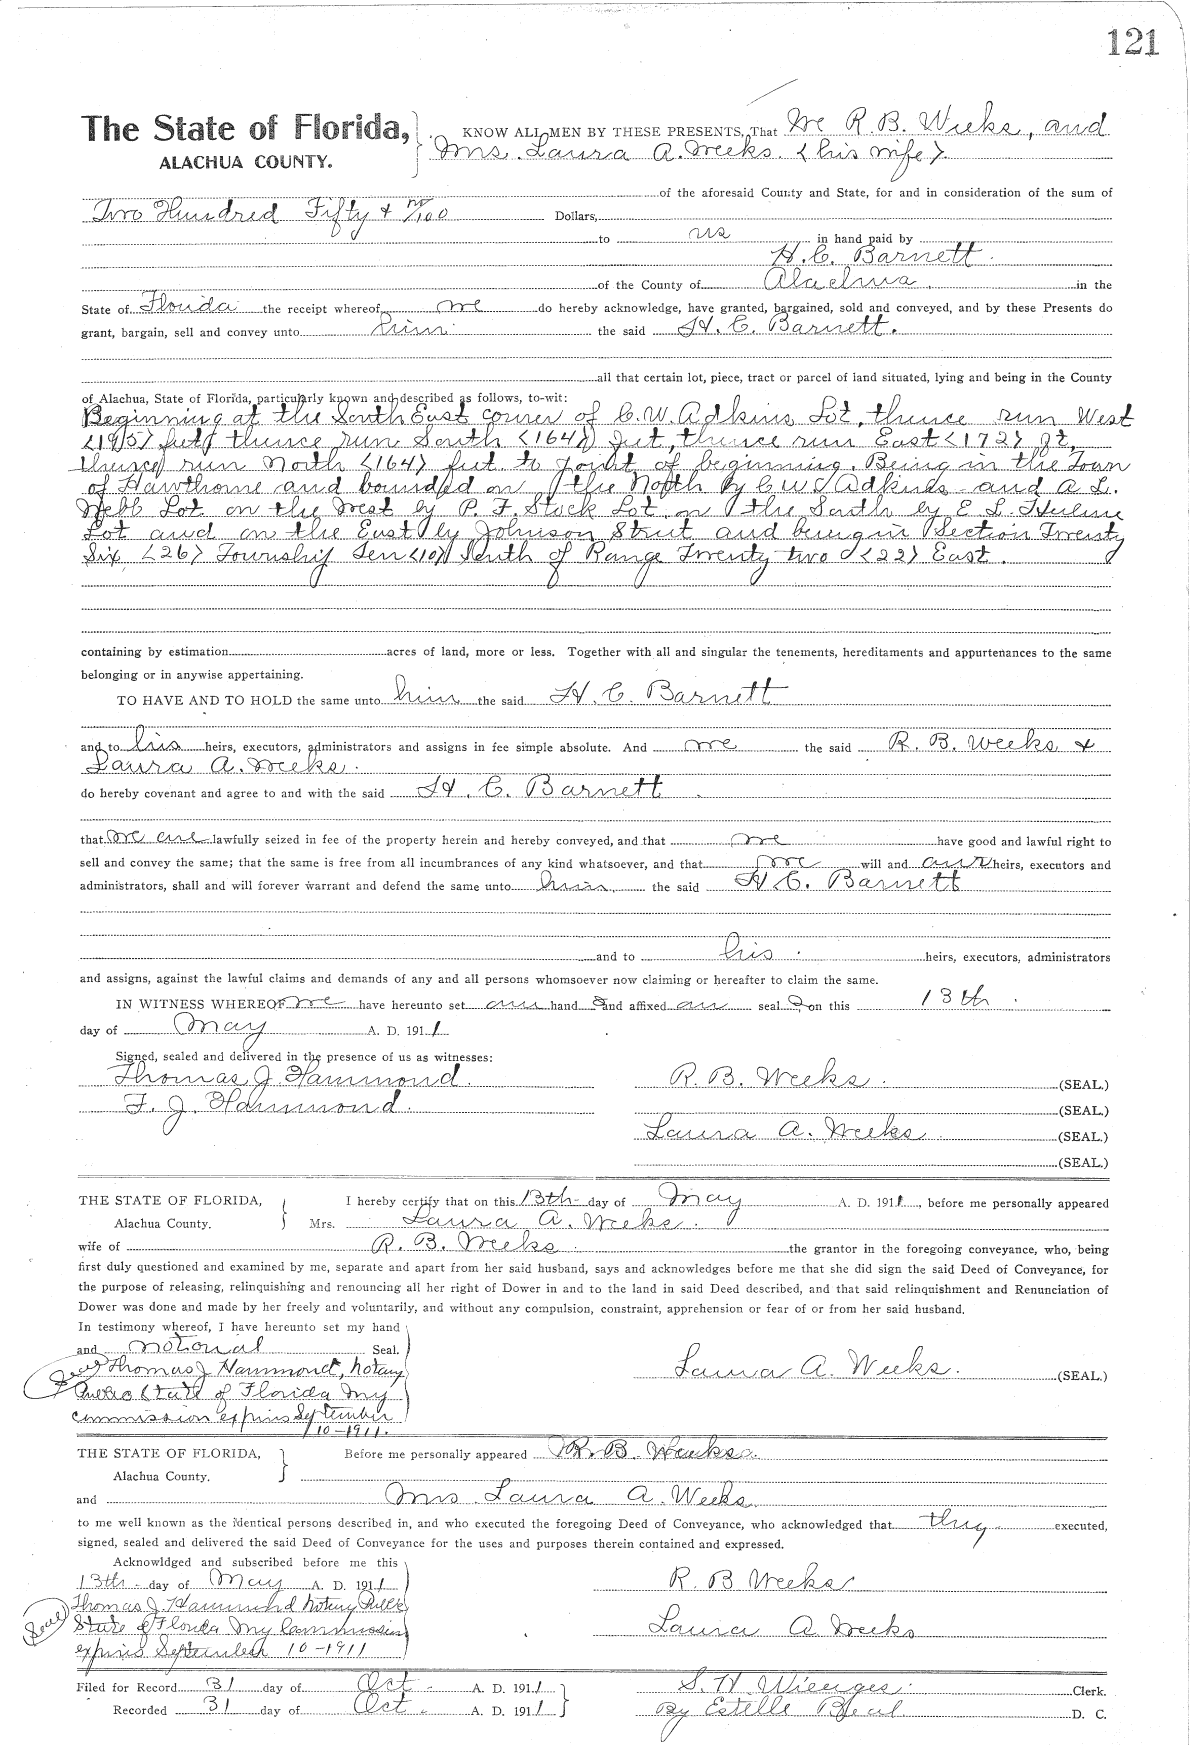 121
The State of Florida, KNOW ALL MEN BY THESE PRESENTS, That We R. B. Weeks, and
ALACHUA COUNTY. Mrs. Laura A. Weeks. (his wife)
of the aforesaid County and State, for and in consideration of the sum of
Two Hundred Fifty & no/100 Dollars,
to us in hand paid by
H. C. Barnett.
of the County of Alachua. in the
State of Florida the receipt whereof we do hereby acknowledge, have granted, bargained, sold and conveyed, and by these Presents do
grant, bargain, sell and convey unto him the said H. C. Barnett.
all that certain lot, piece, tract or parcel of land situated, lying and being in the County
of Alachua, State of Florida, particularly known and described as follows, to-wit:
Beginning at the South East corner of C. W. Adkins Lot, thence run West
feet thence run South (164) feet, thence run East (172) ft,
thence run North (164) feet to point of beginning. Being in the Town
of Hawthorne and bounded on the North by C W Adkins and A L.
Webb Lot on the West by P. F. Stock Lot on the South by E L
Lot and on the East by Johnson Street and being in Section Twenty
Six (26) Township Ten (10) South of Range Twenty two (22) East.
containing by estimation acres of land, more or less. Together with all and singular the tenements, hereditaments and appurtenances to the same
belonging or in anywise appertaining.
TO HAVE AND TO HOLD the same unto him the said H. C. Barnett
and to his heirs, executors, administrators and assigns in fee simple absolute. And we the said R. B. Weeks &
Laura A. Weeks.
do hereby covenant and agree to and with the said H. C. Barnett
that we are lawfully seized in fee of the property herein and hereby conveyed, and that we have good and lawful right to
sell and convey the same; that the same is free from all incumbrances of any kind whatsoever, and that we will and our heirs, executors and
administrators, shall and will forever warrant and defend the same unto him the said H C. Barnett
and to his heirs, executors, administrators
and assigns, against the lawful claims and demands of any and all persons whomsoever now claiming or hereafter to claim the same.
IN WITNESS WHEREOF we have hereunto set our hand s and affixed our seal s on this 13th.
day of May A. D. 1911
Signed, sealed and delivered in the presence of us as witnesses:
Thomas J. Hammond. R. B. Weeks. (SEAL.)
F. J. Hammond. (SEAL.)
Laura A. Weeks. (SEAL.)
(SEAL.)
THE STATE OF FLORIDA, I hereby certify that on this 13th day of May A. D. 1911, before me personally appeared
Alachua County. Mrs. Laura A. Weeks.
wife of R. B. Weeks. the grantor in the foregoing conveyance, who, being
first duly questioned and examined by me, separate and apart from her said husband, says and acknowledges before me that she did sign the said Deed of Conveyance, for
the purpose of releasing, relinquishing and renouncing all her right of Dower in and to the land in said Deed described, and that said relinquishment and Renunciation of
Dower was done and made by her freely and voluntarily, and without any compulsion, constraint, apprehension or fear of or from her said husband.
In testimony whereof, I have hereunto set my hand
and notorial Seal.
Seal Thomas J Hammond, Notary Laura A. Weeks. (SEAL)
Public State of Florida My
commission expires September
10-1911.
THE STATE OF FLORIDA, Before me personally appeared R. B. Weeks
Alachua County.
and Mrs Laura A. Weeks
to me well known as the identical persons described in, and who executed the foregoing Deed of Conveyance, who acknowledged that they executed,
signed, sealed and delivered the said Deed of Conveyance for the uses and purposes therein contained and expressed.
Acknowldged and subscribed before me this
13th day of May A. D. 1911 R. B Weeks
Thomas J. Hammond Notary Public
Seal State of Florida My Commission Laura A Weeks
expires September 10-1911
Filed for Record 31 day of Oct. A. D. 1911 S. H. Wienges. Clerk.
Recorded 31 day of Oct. A. D. 1911 By Estelle Beal D. C.